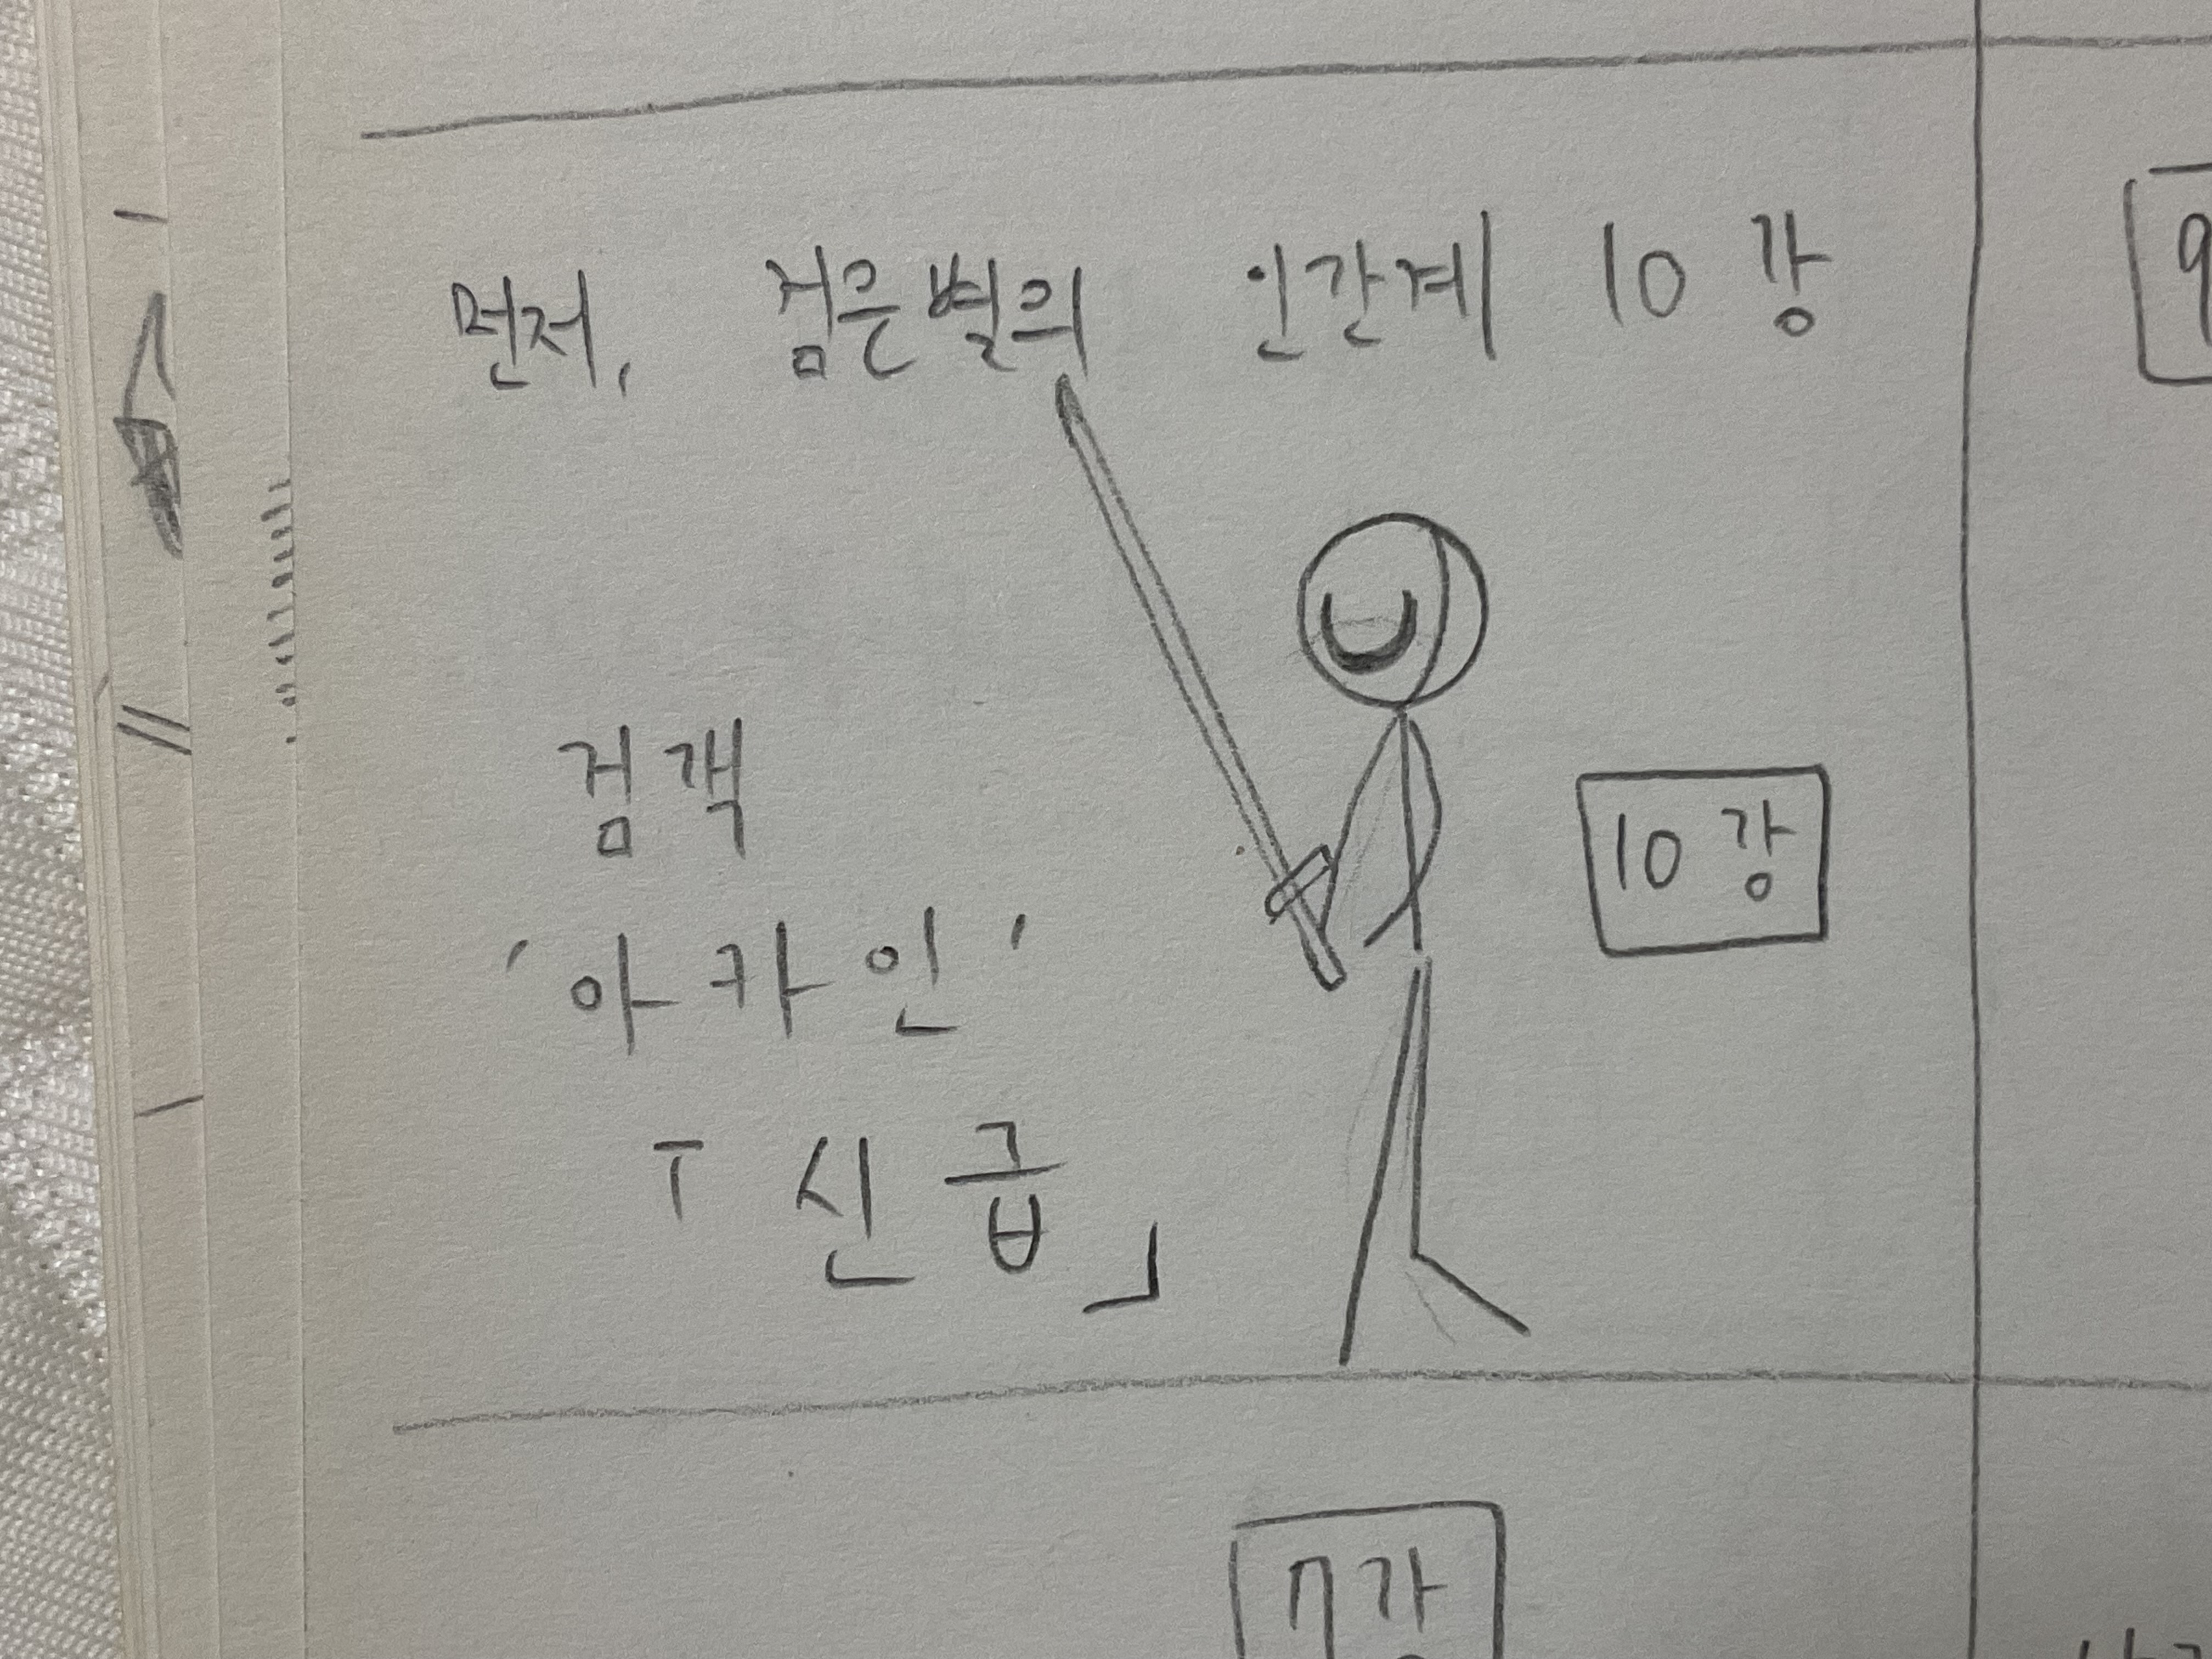 먼저, 검은별의 인간계 10강
검객
'아카인'
「신급」
10강
9
7강